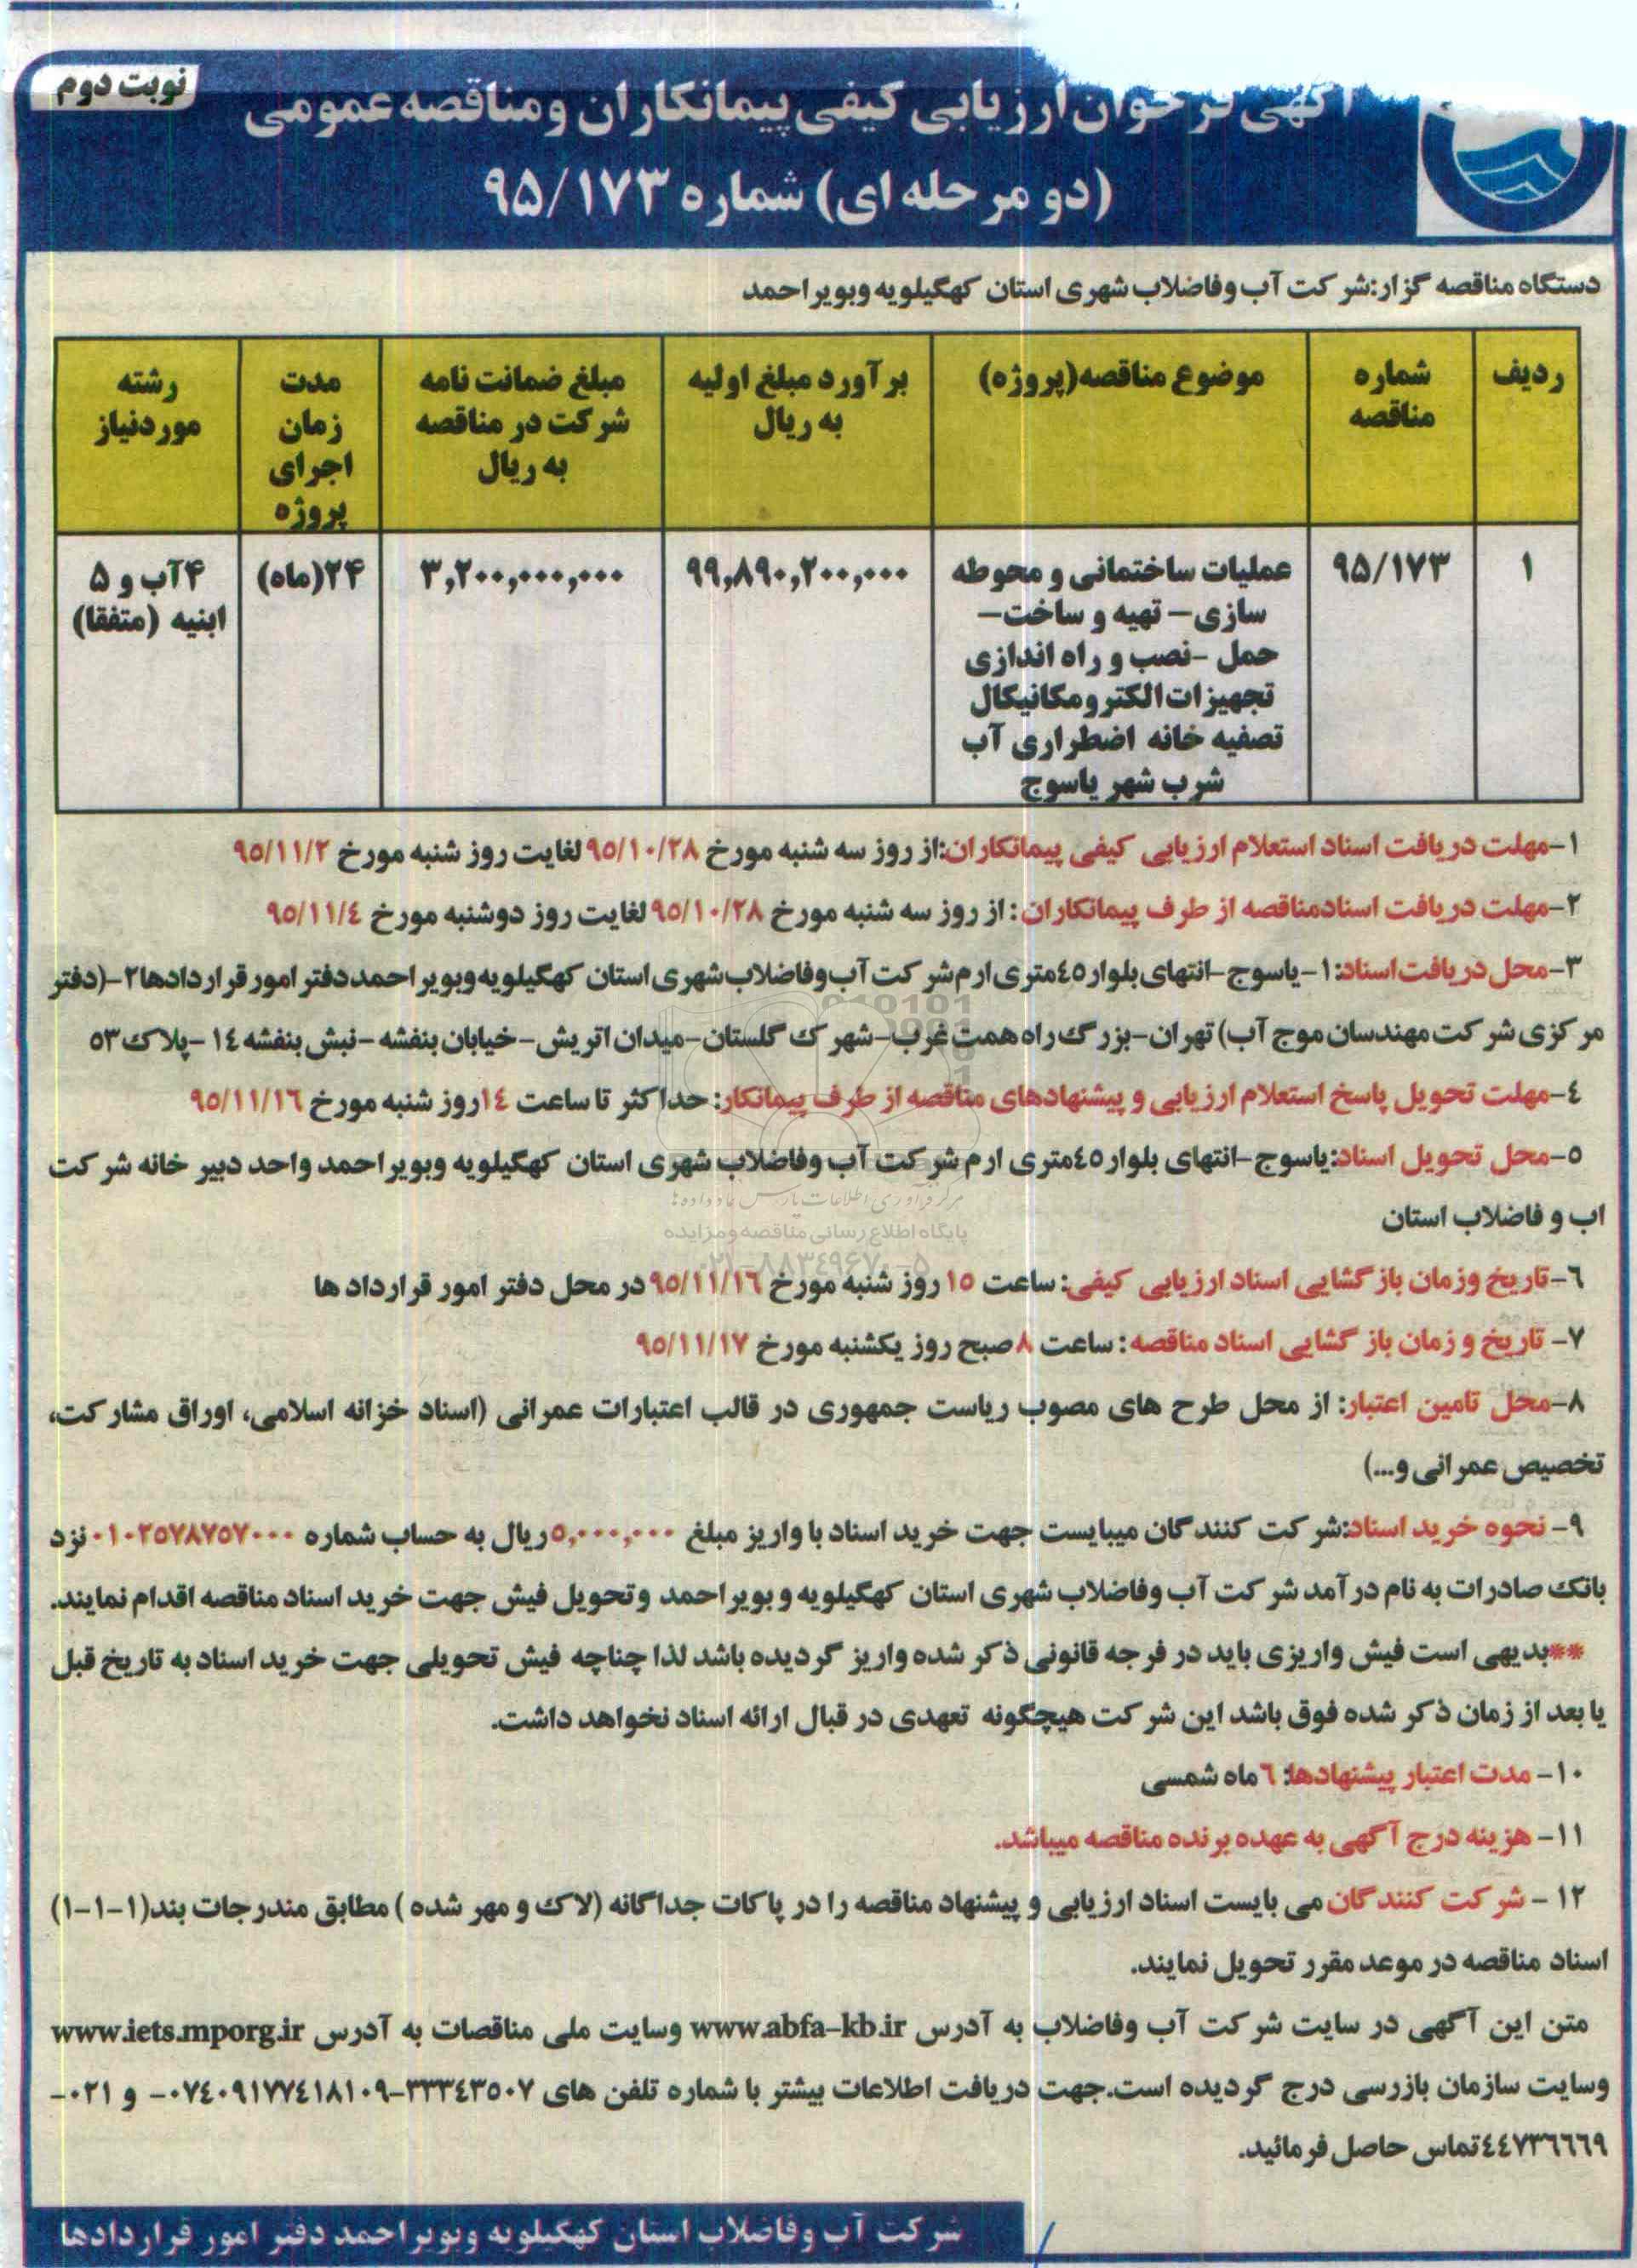 نوبت دوم
آگهی فرخوان ارزیابی کیفی پیمانکاران و مناقصه عمومی
(دو مرحله ای) شماره ۹۵/۱۷۳
دستگاه مناقصه گزار:شرکت آب وفاضلاب شهری استان کهگیلویه وبویراحمد
ردیف
شماره
مناقصه
موضوع مناقصه(پروژه)
برآورد مبلغ اولیه
به ریال
مبلغ ضمانت نامه
شرکت در مناقصه
به ریال
مدت
زمان
اجرای
پروژه
رشته
موردنیاز
۱
۹۵/۱۷۳
عملیات ساختمانی و محوطه
سازی– تهیه و ساخت–
حمل -نصب و راه اندازی
تجهیزات الکترومکانیکال
تصفیه خانه اضطراری آب
شرب شهر یاسوج
۹۹,۸۹۰,۲۰۰,۰۰۰
۳,۲۰۰,۰۰۰,۰۰۰
۲۴(ماه)
۴آب و ۵
ابنیه (متفقا)
۱-مهلت دریافت اسناد استعلام ارزیابی کیفی پیمانکاران:از روز سه شنبه مورخ ۹۵/۱۰/۲۸ لغایت روز شنبه مورخ ۹۵/۱۱/۲
۲-مهلت دریافت اسنادمناقصه از طرف پیمانکاران: از روز سه شنبه مورخ ۹۵/۱۰/۲۸ لغایت روز دوشنبه مورخ ۹۵/۱۱/٤
۳-محل دریافت اسناد:۱-یاسوج-انتهای بلوار٤٥متری ارم شرکت آب وفاضلاب شهری استان کهگیلویه وبویراحمد دفتر امور قراردادها۲-(دفتر
مرکزی شرکت مهندسان موج آب) تهران-بزرگ راه همت غرب-شهرک گلستان-میدان اتریش-خیابان بنفشه-نبش بنفشه ۱٤ -پلاک ۵۳
٤-مهلت تحویل پاسخ استعلام ارزیابی و پیشنهادهای مناقصه از طرف پیمانکار: حداکثر تا ساعت ۱٤روز شنبه مورخ ۹۵/۱۱/۱٦
٥-محل تحویل اسناد:یاسوج-انتهای بلوار٤٥متری ارم شرکت آب وفاضلاب شهری استان کهگیلویه وبویراحمد واحد دبیر خانه شرکت
مرکز فرآوری اطلاعات پارس نماد داده ها
اب و فاضلاب استان
پایگاه اطلاع رسانی مناقصه و مزایده
۰۲۱-۸۸۳٤۹٦۷۰-۵
٦-تاریخ وزمان بازگشایی اسناد ارزیابی کیفی: ساعت ۱٥ روز شنبه مورخ ۹۵/۱۱/۱٦ در محل دفتر امور قرارداد ها
۷- تاریخ و زمان بازگشایی اسناد مناقصه: ساعت ۸صبح روز یکشنبه مورخ ۹۵/۱۱/۱۷
۸-محل تامین اعتبار: از محل طرح های مصوب ریاست جمهوری در قالب اعتبارات عمرانی (اسناد خزانه اسلامی، اوراق مشارکت،
تخصیص عمرانی و...)
۹- نحوه خرید اسناد:شرکت کنندگان میبایست جهت خرید اسناد با واریز مبلغ ۵,۰۰۰,۰۰۰ریال به حساب شماره ۰۱۰۲۵۷۸۷۵۷۰۰۰ نزد
بانک صادرات به نام درآمد شرکت آب وفاضلاب شهری استان کهگیلویه و بویراحمد وتحویل فیش جهت خرید اسناد مناقصه اقدام نمایند.
**بدیهی است فیش واریزی باید در فرجه قانونی ذکر شده واریز گردیده باشد لذا چناچه فیش تحویلی جهت خرید اسناد به تاریخ قبل
یا بعد از زمان ذکر شده فوق باشد این شرکت هیچگونه تعهدی در قبال ارائه اسناد نخواهد داشت.
۱۰- مدت اعتبار پیشنهادها: ٦ماه شمسی
۱۱- هزینه درج آگهی به عهده برنده مناقصه میباشد.
۱۲ - شرکت کنندگان می بایست اسناد ارزیابی و پیشنهاد مناقصه را در پاکات جداگانه (لاک و مهر شده ) مطابق مندرجات بند(۱-۱-۱)
اسناد مناقصه در موعد مقرر تحویل نمایند.
متن این آگهی در سایت شرکت آب وفاضلاب به آدرس www.abfa-kb.ir وسایت ملی مناقصات به آدرس www.iets.mporg.ir
وسایت سازمان بازرسی درج گردیده است.جهت دریافت اطلاعات بیشتر با شماره تلفن های ۳۳۳٤۳۵۰۷-۰۷٤۰۹۱۷۷٤۱۸۱۰۹- و ۰۲۱-
٤٤۷۳٦٦٦۹تماس حاصل فرمائید.
شرکت آب وفاضلاب استان کهگیلویه وبویراحمد دفتر امور قراردادها